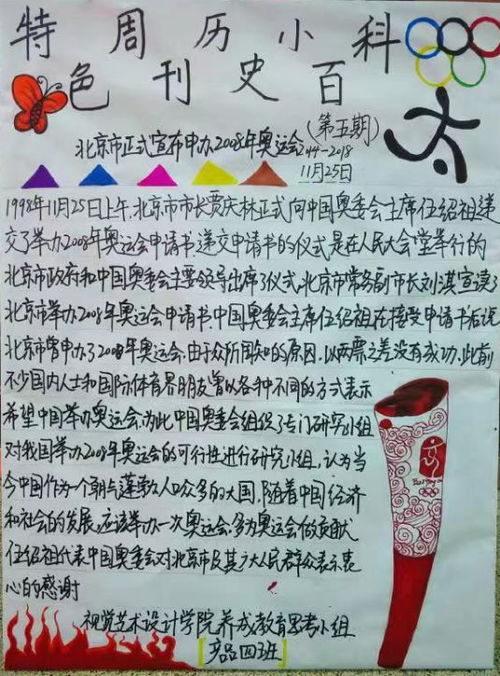 特色周刊历史小百科
(第五期)
北京市正式宣布申办2008年奥运会
244-2018
11月25日
1998年11月25日上午,北京市市长贾庆林正式向中国奥委会主席伍绍祖递
交了举办2008年奥运会申请书.递交申请书的仪式是在人民大会堂举行的
北京市政府和中国奥委会主要领导出席了仪式.北京市常务副市长刘淇宣读了
北京市举办2008年奥运会申请书.中国奥委会主席伍绍祖在接受申请书后说
北京市曾申办了2000年奥运会.由于众所周知的原因.以两票之差没有成功.此前
不少国内人士和国际体育界朋友曾以各种不同的方式表示
希望中国举办奥运会.为此中国奥委会组织了专门研究小组
对我国举办2008年奥运会的可行性进行研究小组,认为当
今中国作为一个朝气蓬勃人口众多的大国,随着中国经济
和社会的发展.应该举办一次奥运会.多为奥运会做贡献
伍绍祖代表中国奥委会对北京市及其广大人民群众表示衷
心的感谢
视觉艺术设计学院养成教育思考小组
[产品四班]